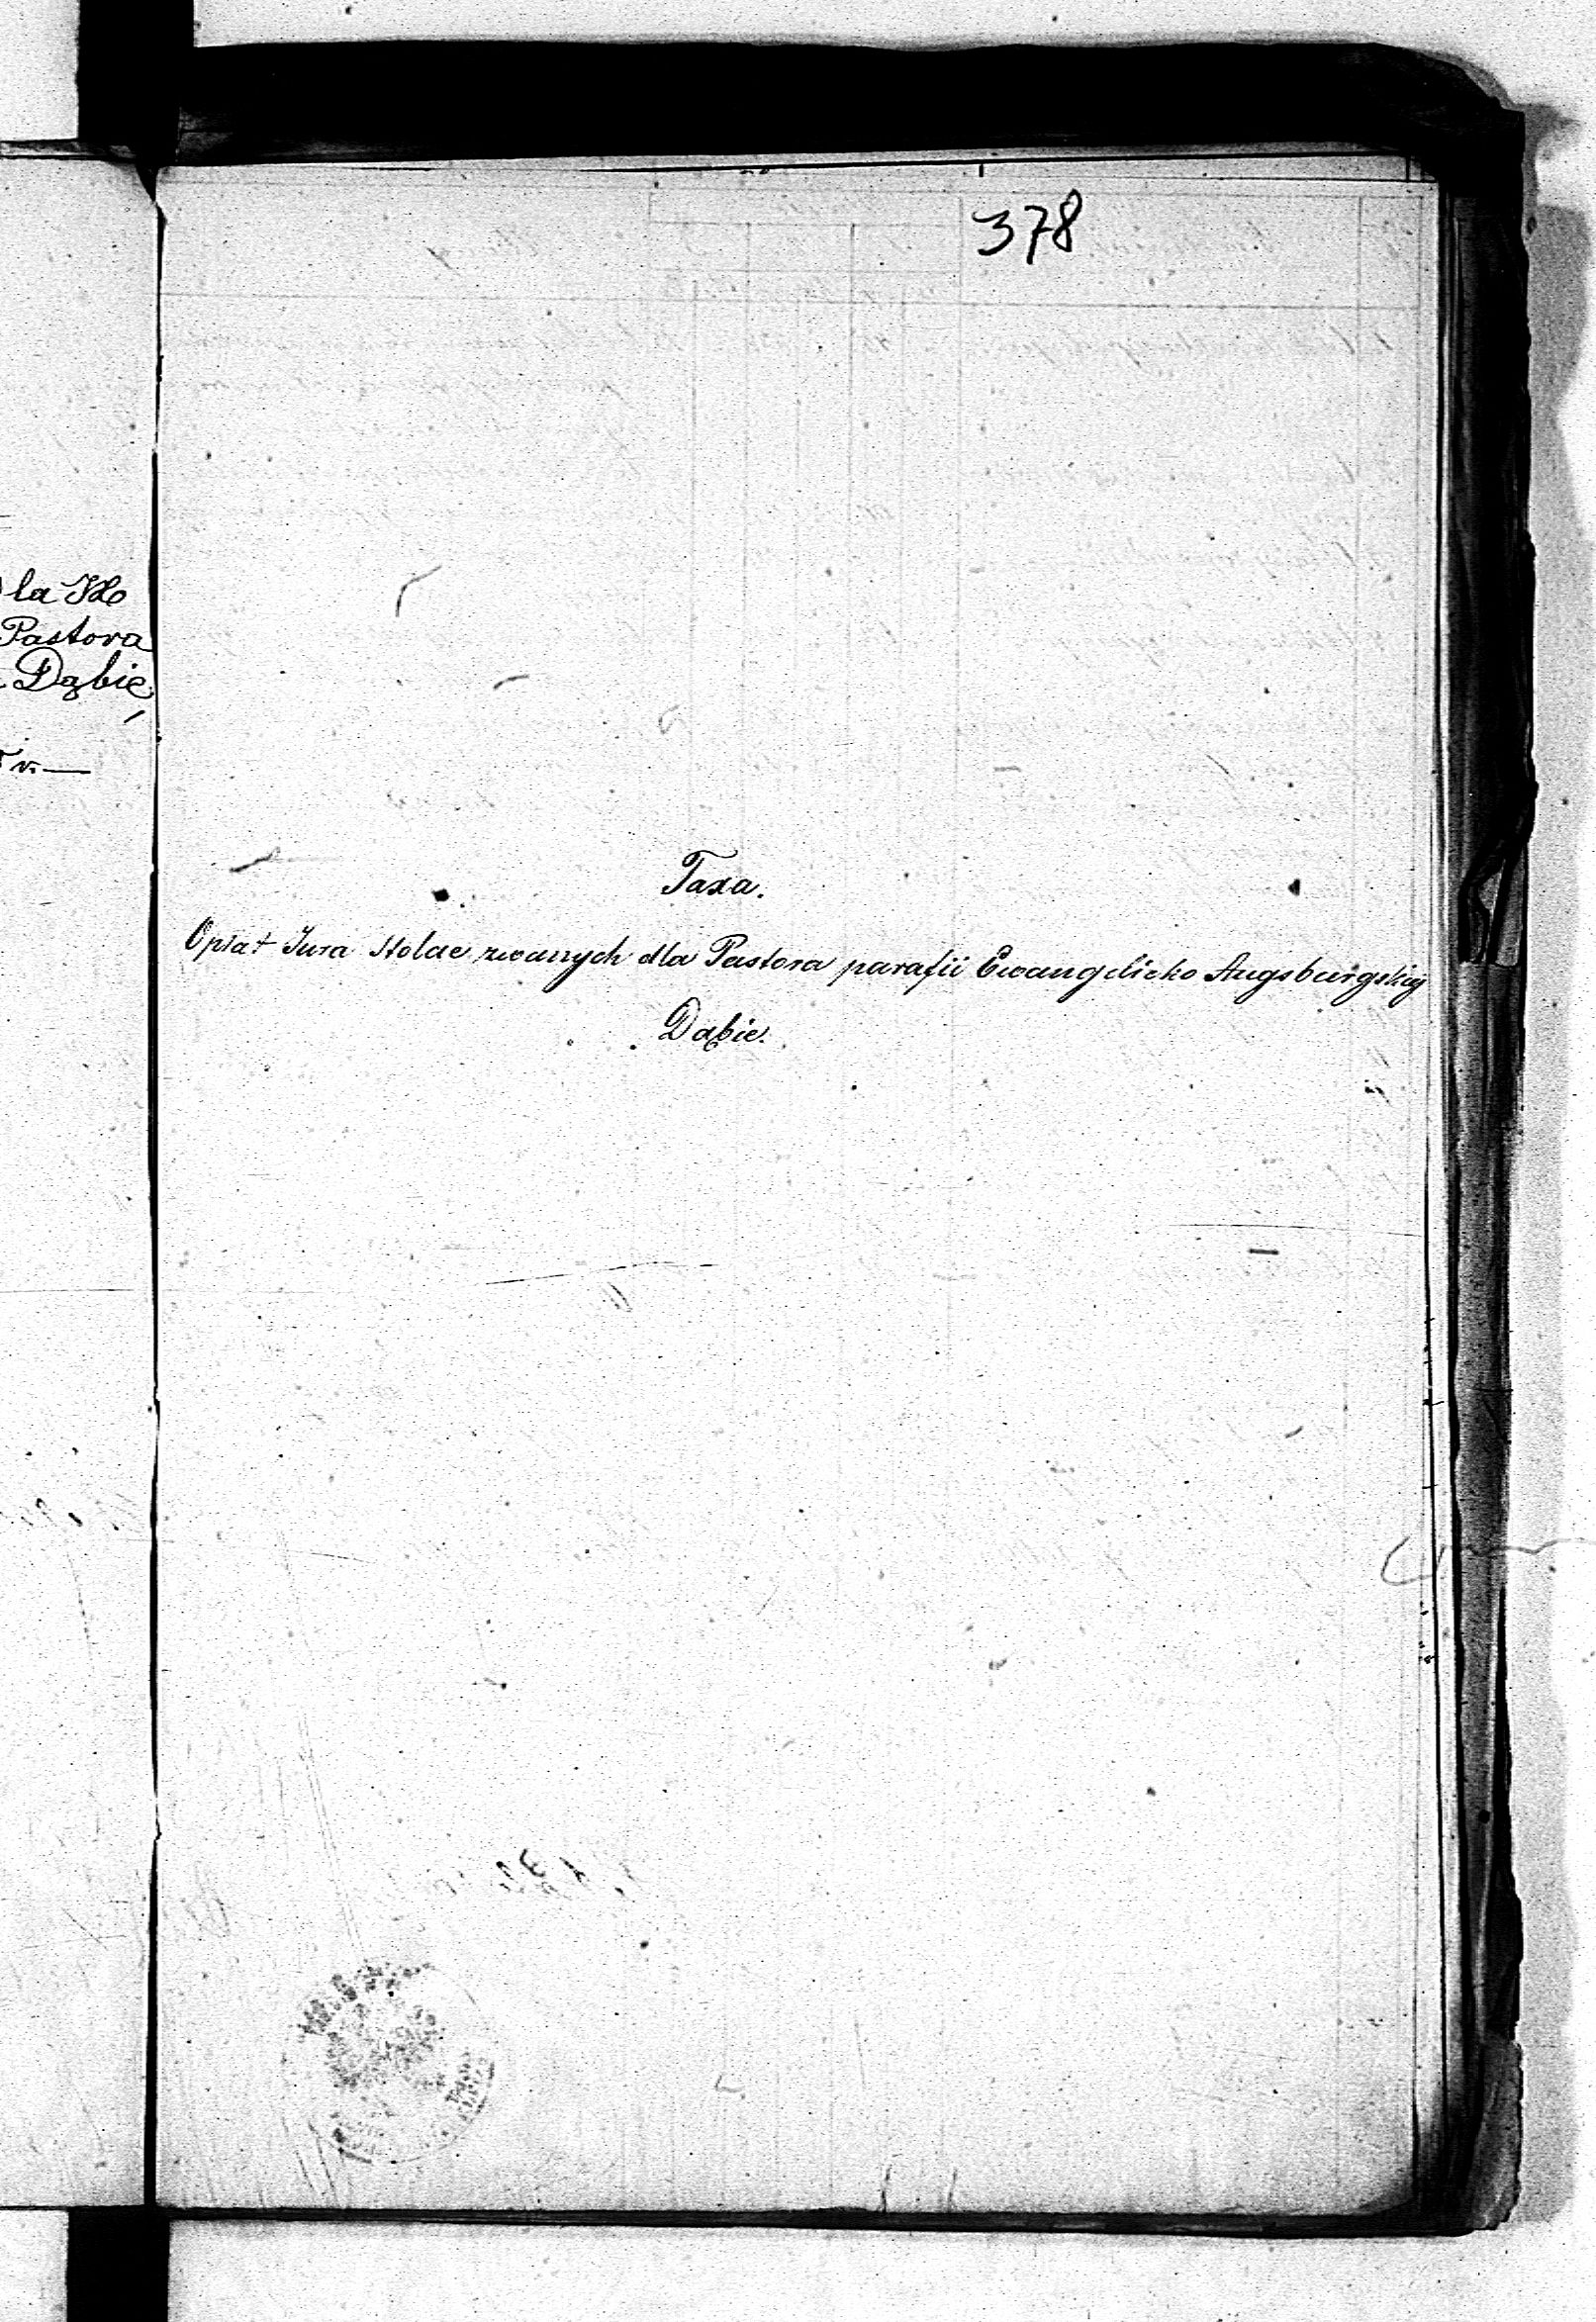 378
la
Pastora
Dąbie
Taxa.
Opłat Jura Stolae zwanych dla Pastora parafii Ewangelicko Augsburgskiej
Dąbie.